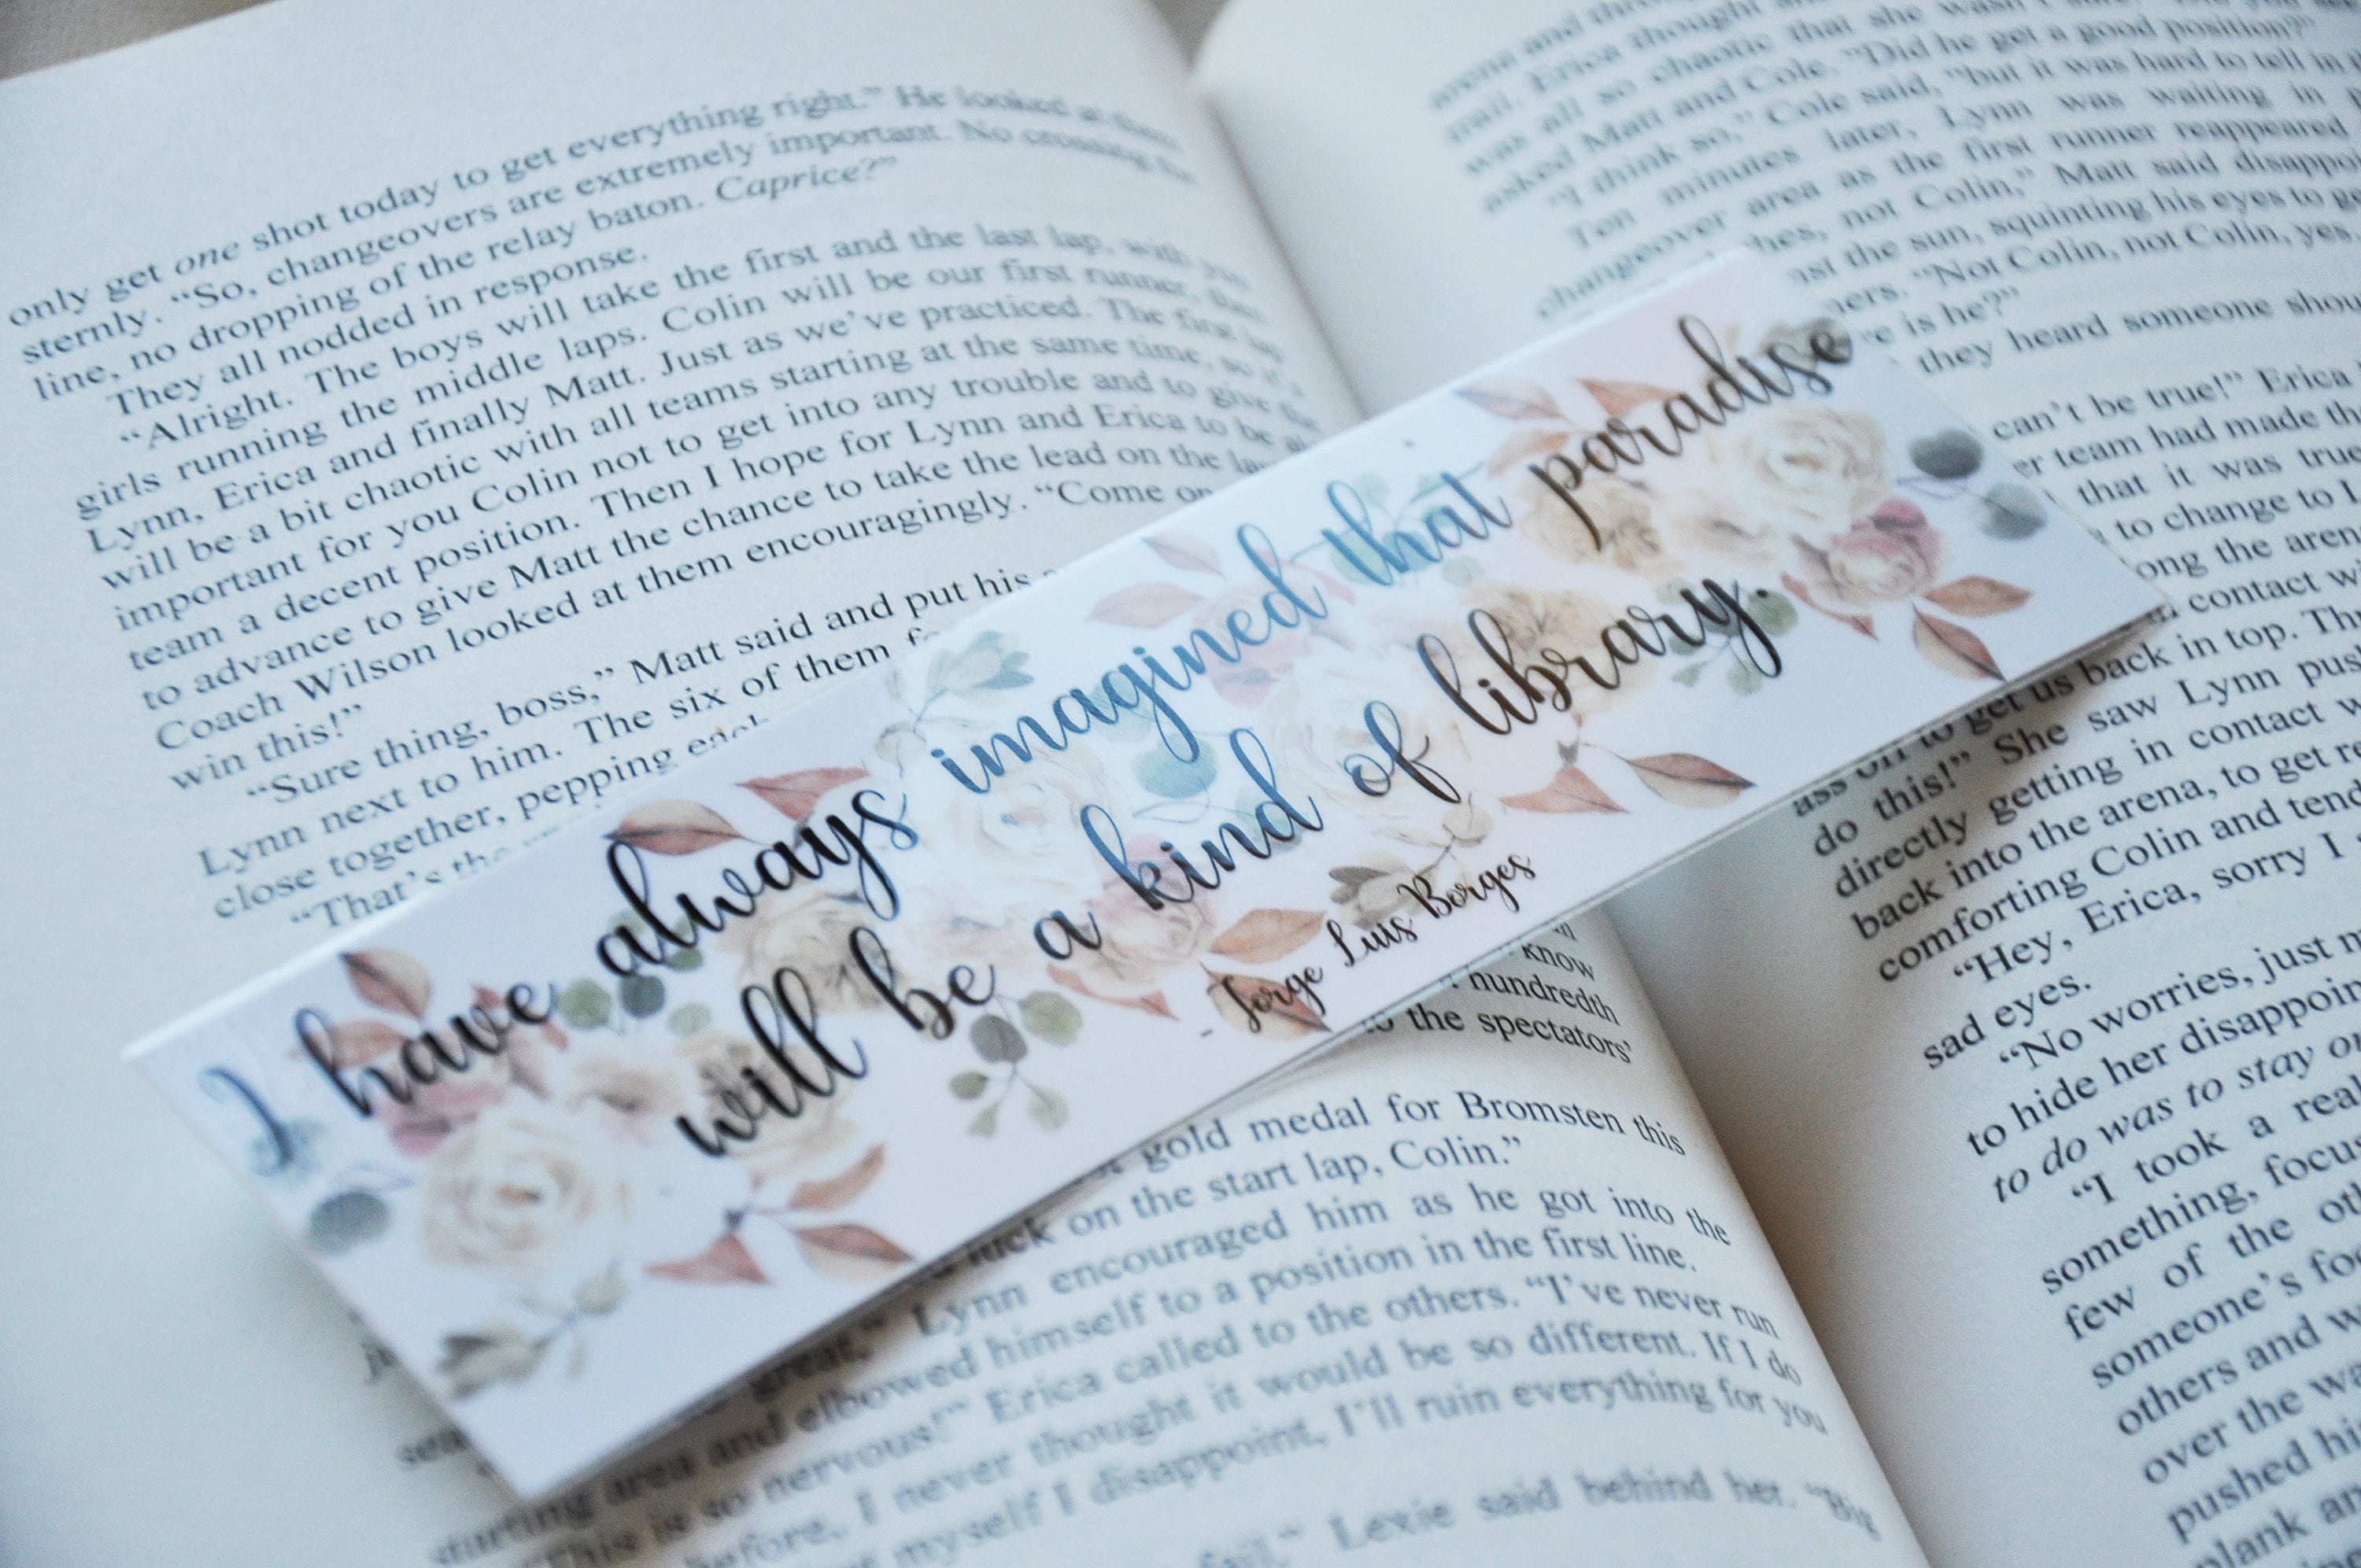 only get one shot today to get everything right.” He looked at them
sternly. “So, changeovers are extremely important. No crossing the
line, no dropping of the relay baton. Caprice?”
They all nodded in response.
“Alright. The boys will take the first and the last lap, with you
girls running the middle laps. Colin will be our first runner, then
Lynn, Erica and finally Matt. Just as we’ve practiced. The first lap
will be a bit chaotic with all teams starting at the same time, so it’s
important for you Colin not to get into any trouble and to give the
team a decent position. Then I hope for Lynn and Erica to be able
to advance to give Matt the chance to take the lead on the la
Coach Wilson looked at them encouragingly. “Come on
win this!”
“Sure thing, boss,” Matt said and put his
Lynn next to him. The six of them
close together, pepping
“That’s the
I have always imagined that paradise
will be a kind of library.
- Jorge Luis Borges
know
hundredth
the spectators’
gold medal for Bromsten this
luck on the start lap, Colin.”
great,” Lynn encouraged him as he got into the
starting area and elbowed himself to a position in the first line.
“This is so nervous!” Erica called to the others. “I’ve never run
before. I never thought it would be so different. If I do
myself I disappoint, I’ll ruin everything for you
fail.” Lexie said behind her. “Big
arena and
nail. Erica thought
was all so chaotic that she wasn’t
asked Matt and Cole. “Did he get a good position?”
“I think so,” Cole said, “but it was hard to tell in
Ten minutes later, Lynn was waiting in
changeover area as the first runner reappeared
not Colin,” Matt said
the sun, squinting his eyes to
“Not Colin, not Colin, yes,
is he?”
they heard someone
can’t be true!” Erica
team had made
that it was true
to change to
ong the
contact
to get us back in top.
do this!” She saw Lynn
directly getting in contact
back into the arena, to get
comforting Colin and
“Hey, Erica, sorry I
sad eyes.
“No worries, just
to hide her
to do was to stay
“I took a
something,
few of the
someone’s
others and
over the
pushed